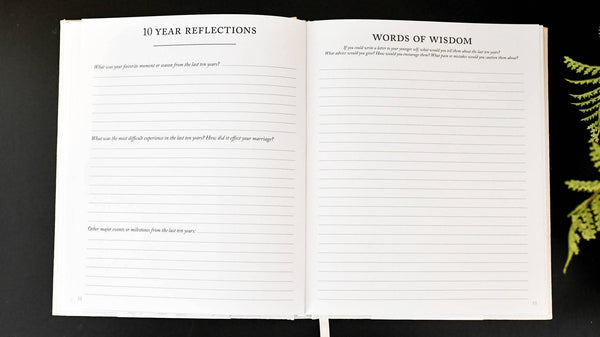 10 YEAR REFLECTIONS
What was your favorite moment or season from the last ten years?
What was the most difficult experience in the last ten years? How did it effect your marriage?
Other major events or milestones from the last ten years:
WORDS OF WISDOM
If you could write a letter to your younger self, what would you tell them about the last ten years?
What advice would you give? How would you encourage them? What pain or mistakes would you caution them about?